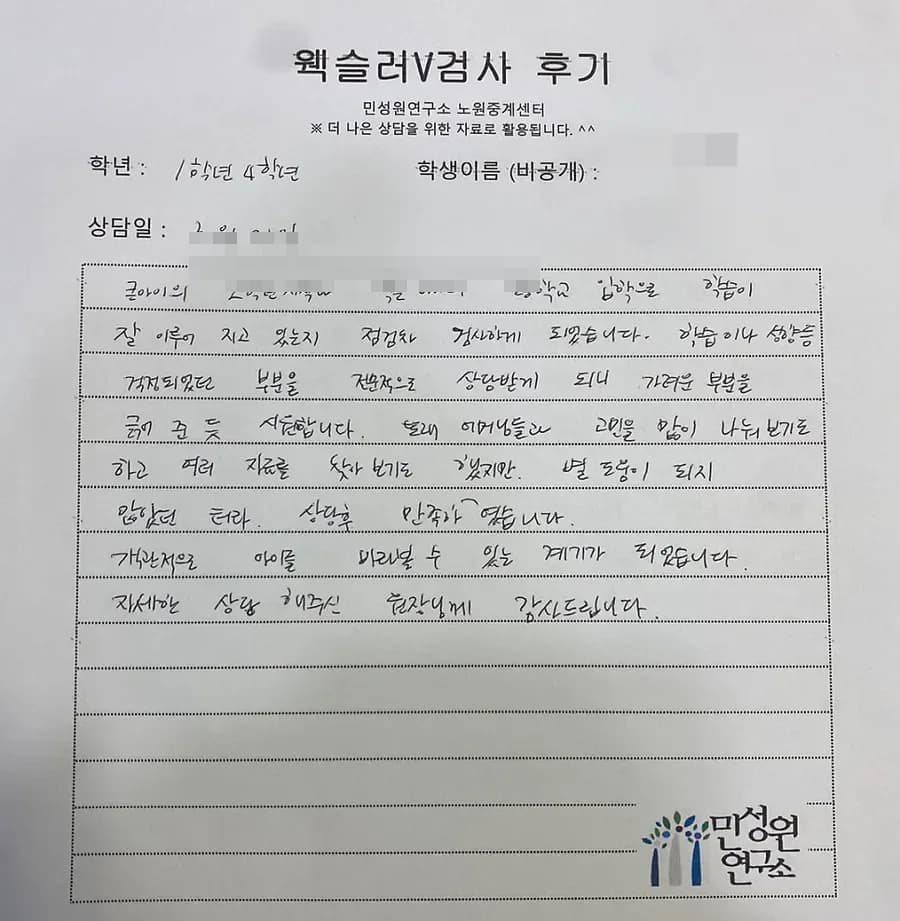 웩슬러V검사 후기
민성원연구소 노원중계센터
※ 더 나은 상담을 위한 자료로 활용됩니다. ^^
학년 : 1학년 4학년
학생이름 (비공개) :
상담일 :
큰아이의 입학으로 학습이
잘 이루어 지고 있는지 점검차 검사하게 되었습니다. 학습이나 성향등
걱정되었던 부분을 전문적으로 상담받게 되니 가려운 부분을
긁어 준 듯 시원합니다. 또래 어머님들과 고민을 많이 나눠보기도
하고 여러 자료를 찾아보기도 했지만. 별 도움이 되지
않았던 터라. 상담후 만족하였습니다.
객관적으로 아이를 바라볼 수 있는 계기가 되었습니다.
자세한 상담 해주신 원장님께 감사드립니다.
민성원
연구소